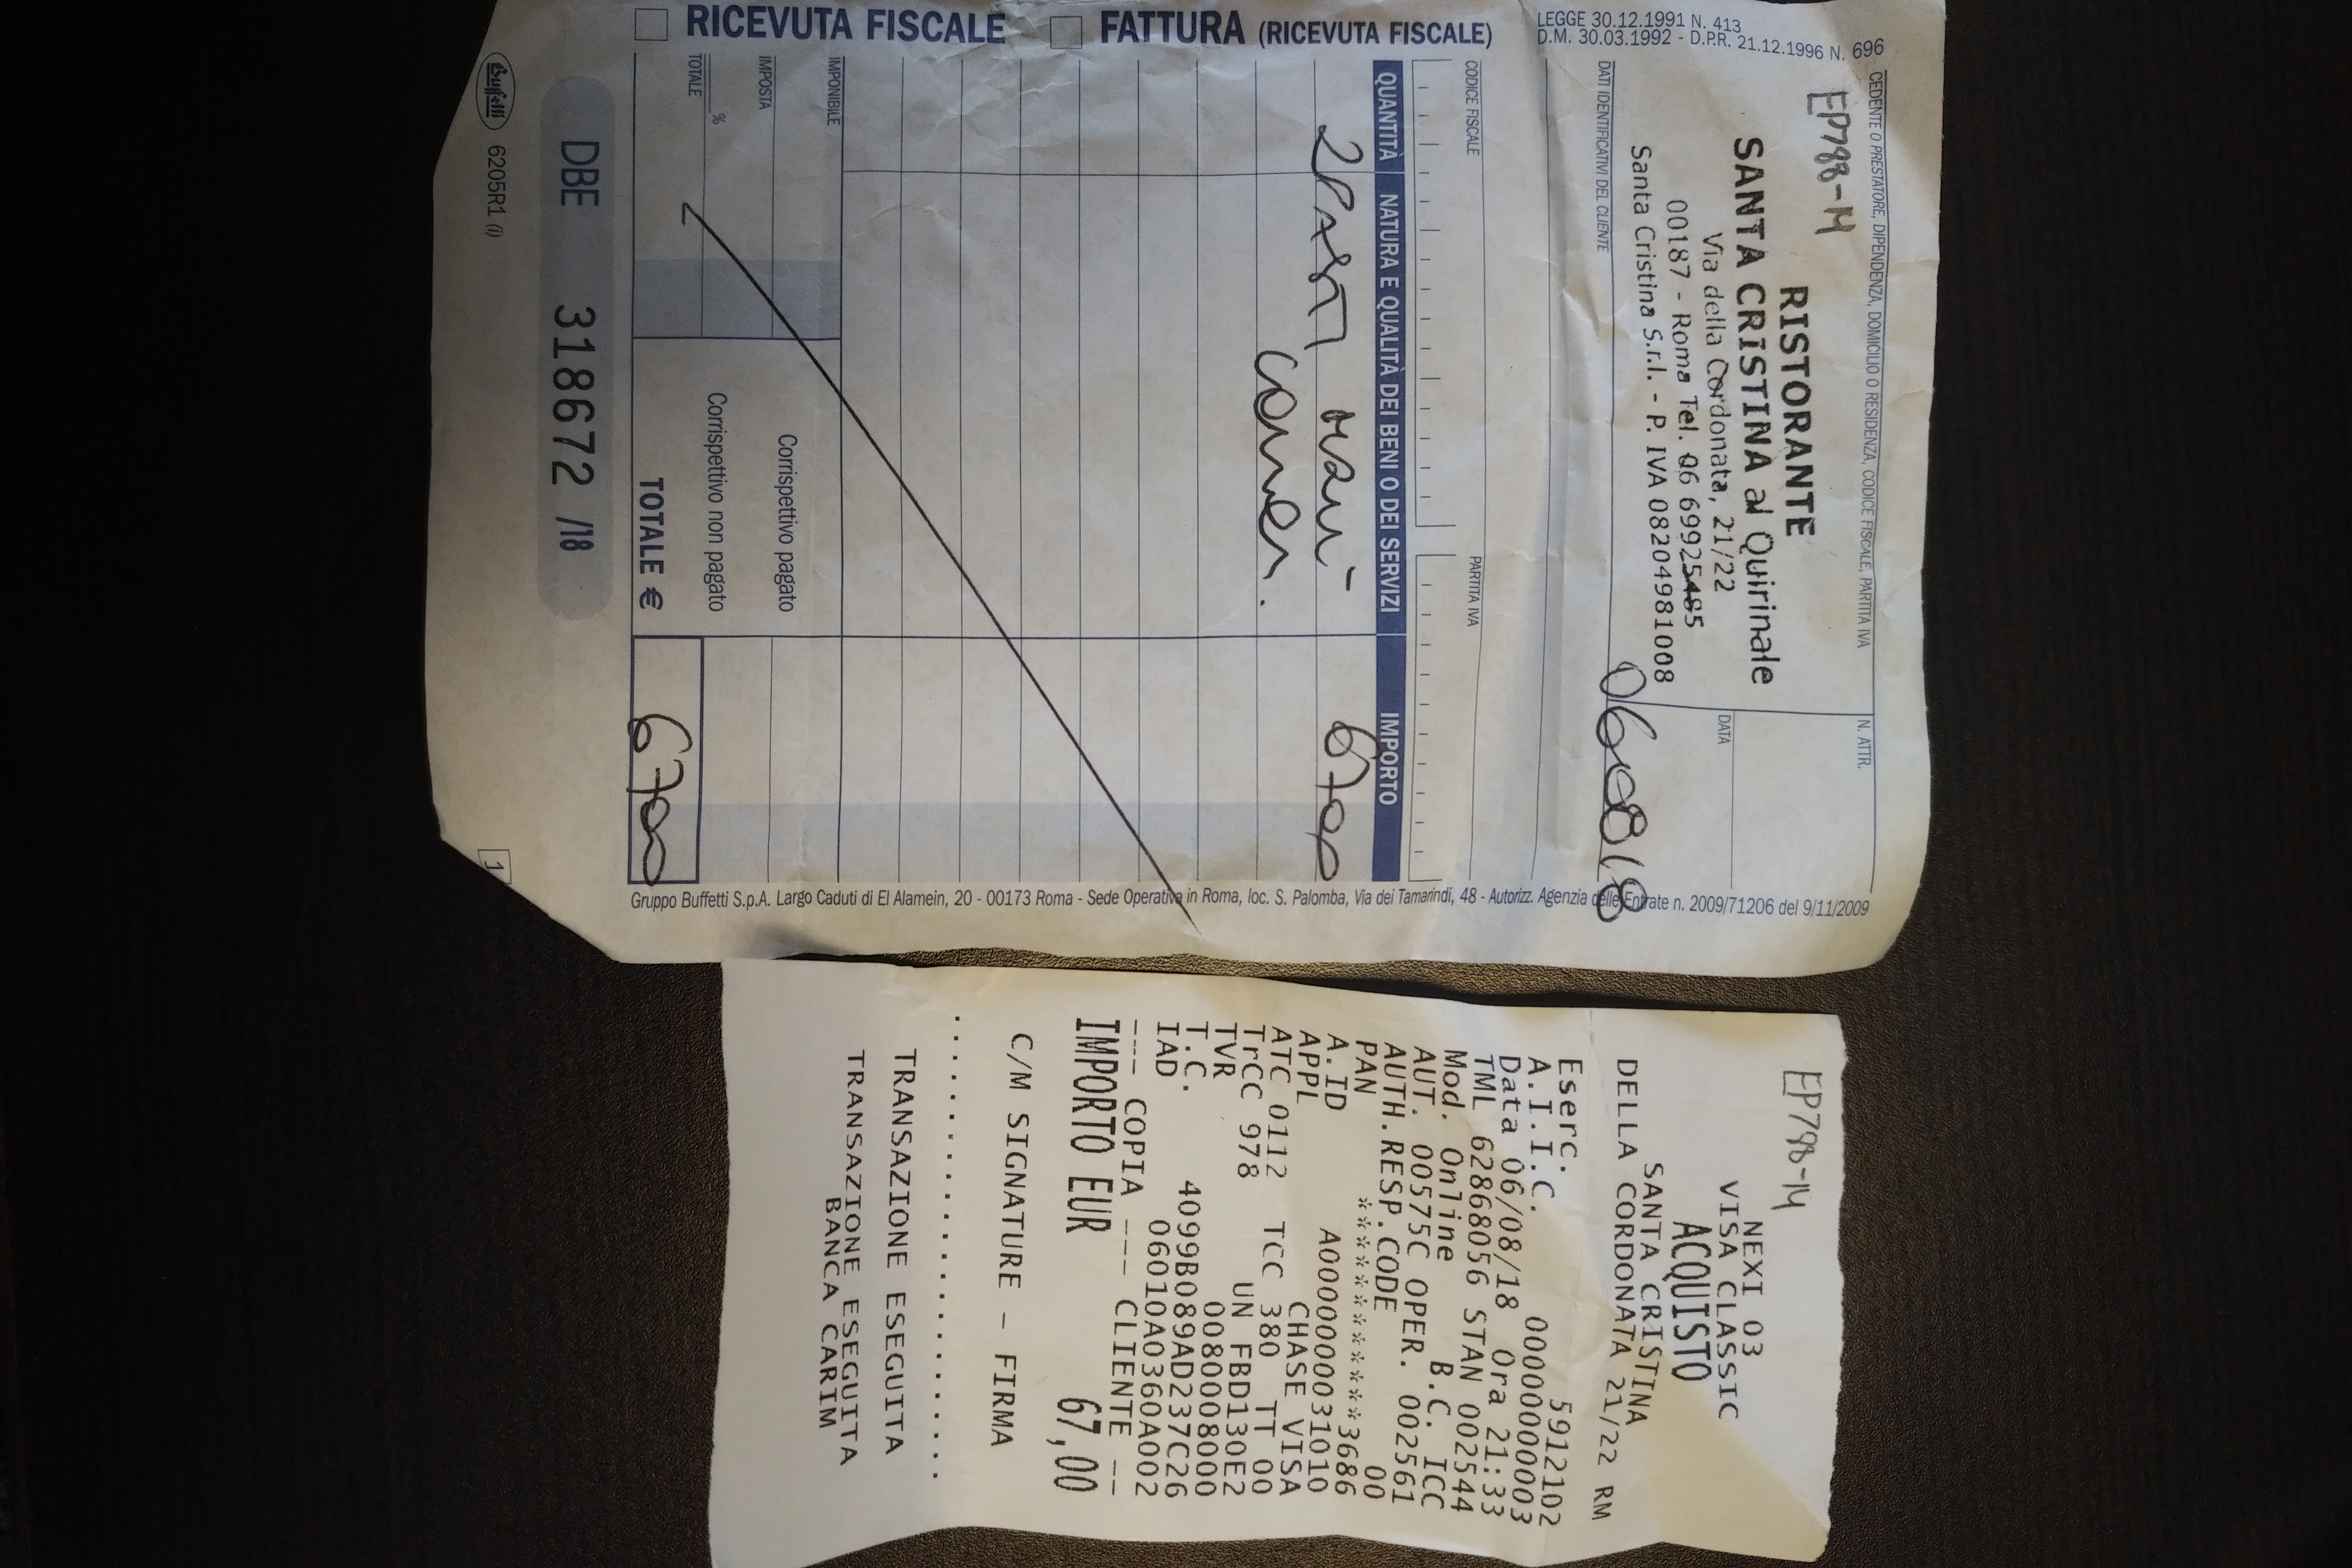 CEDENTE O PRESTATORE, DIPENDENZA, DOMICILIO O RESIDENZA, CODICE FISCALE, PARTITA IVA
N. ATTR.
EP798-14
RISTORANTE
SANTA CRISTINA al Quirinale
Via della Cordonata, 21/22
00187 - Roma Tel. 06 69925485
Santa Cristina S.r.l. - P. IVA 08204981008
DATA
060818
DATI IDENTIFICATIVI DEL CLIENTE
CODICE FISCALE
PARTITA IVA
QUANTITÀ NATURA E QUALITÀ DEI BENI O DEI SERVIZI IMPORTO
2 PASTI 6700
IMPONIBILE
IMPOSTA
Corrispettivo pagato
%
Corrispettivo non pagato
TOTALE
TOTALE € 6700
DBE 318672 /18
Buffetti 6205R1 (i)
1
RICEVUTA FISCALE
FATTURA (RICEVUTA FISCALE)
LEGGE 30.12.1991 N. 413
D.M. 30.03.1992 - D.P.R. 21.12.1996 N. 696
Gruppo Buffetti S.p.A. Largo Caduti di El Alamein, 20 - 00173 Roma - Sede Operativa in Roma, loc. S. Palomba, Via dei Tamarindi, 48 - Autorizz. Agenzia delle Entrate n. 2009/71206 del 9/11/2009
EP798-14
NEXI 03
VISA CLASSIC
ACQUISTO
SANTA CRISTINA
DELLA CORDONATA 21/22 RM
Eserc. 5912102
A.I.I.C. 00000000003
Data 06/08/18 Ora 21:33
TML 62868056 STAN 002544
Mod. Online B.C. ICC
AUT. 00575C OPER. 002561
AUTH.RESP.CODE 00
PAN ************3686
A.ID A0000000031010
APPL CHASE VISA
ATC 0112 TCC 380 TT 00
TrCC 978 UN FBD130E2
TVR 0080008000
T.C. 4099B089AD237C26
IAD 06010A0360A002
---- COPIA --- CLIENTE --
IMPORTO EUR 67,00
C/M SIGNATURE - FIRMA
..........................
TRANSAZIONE ESEGUITA
TRANSAZIONE ESEGUITA
BANCA CARIM